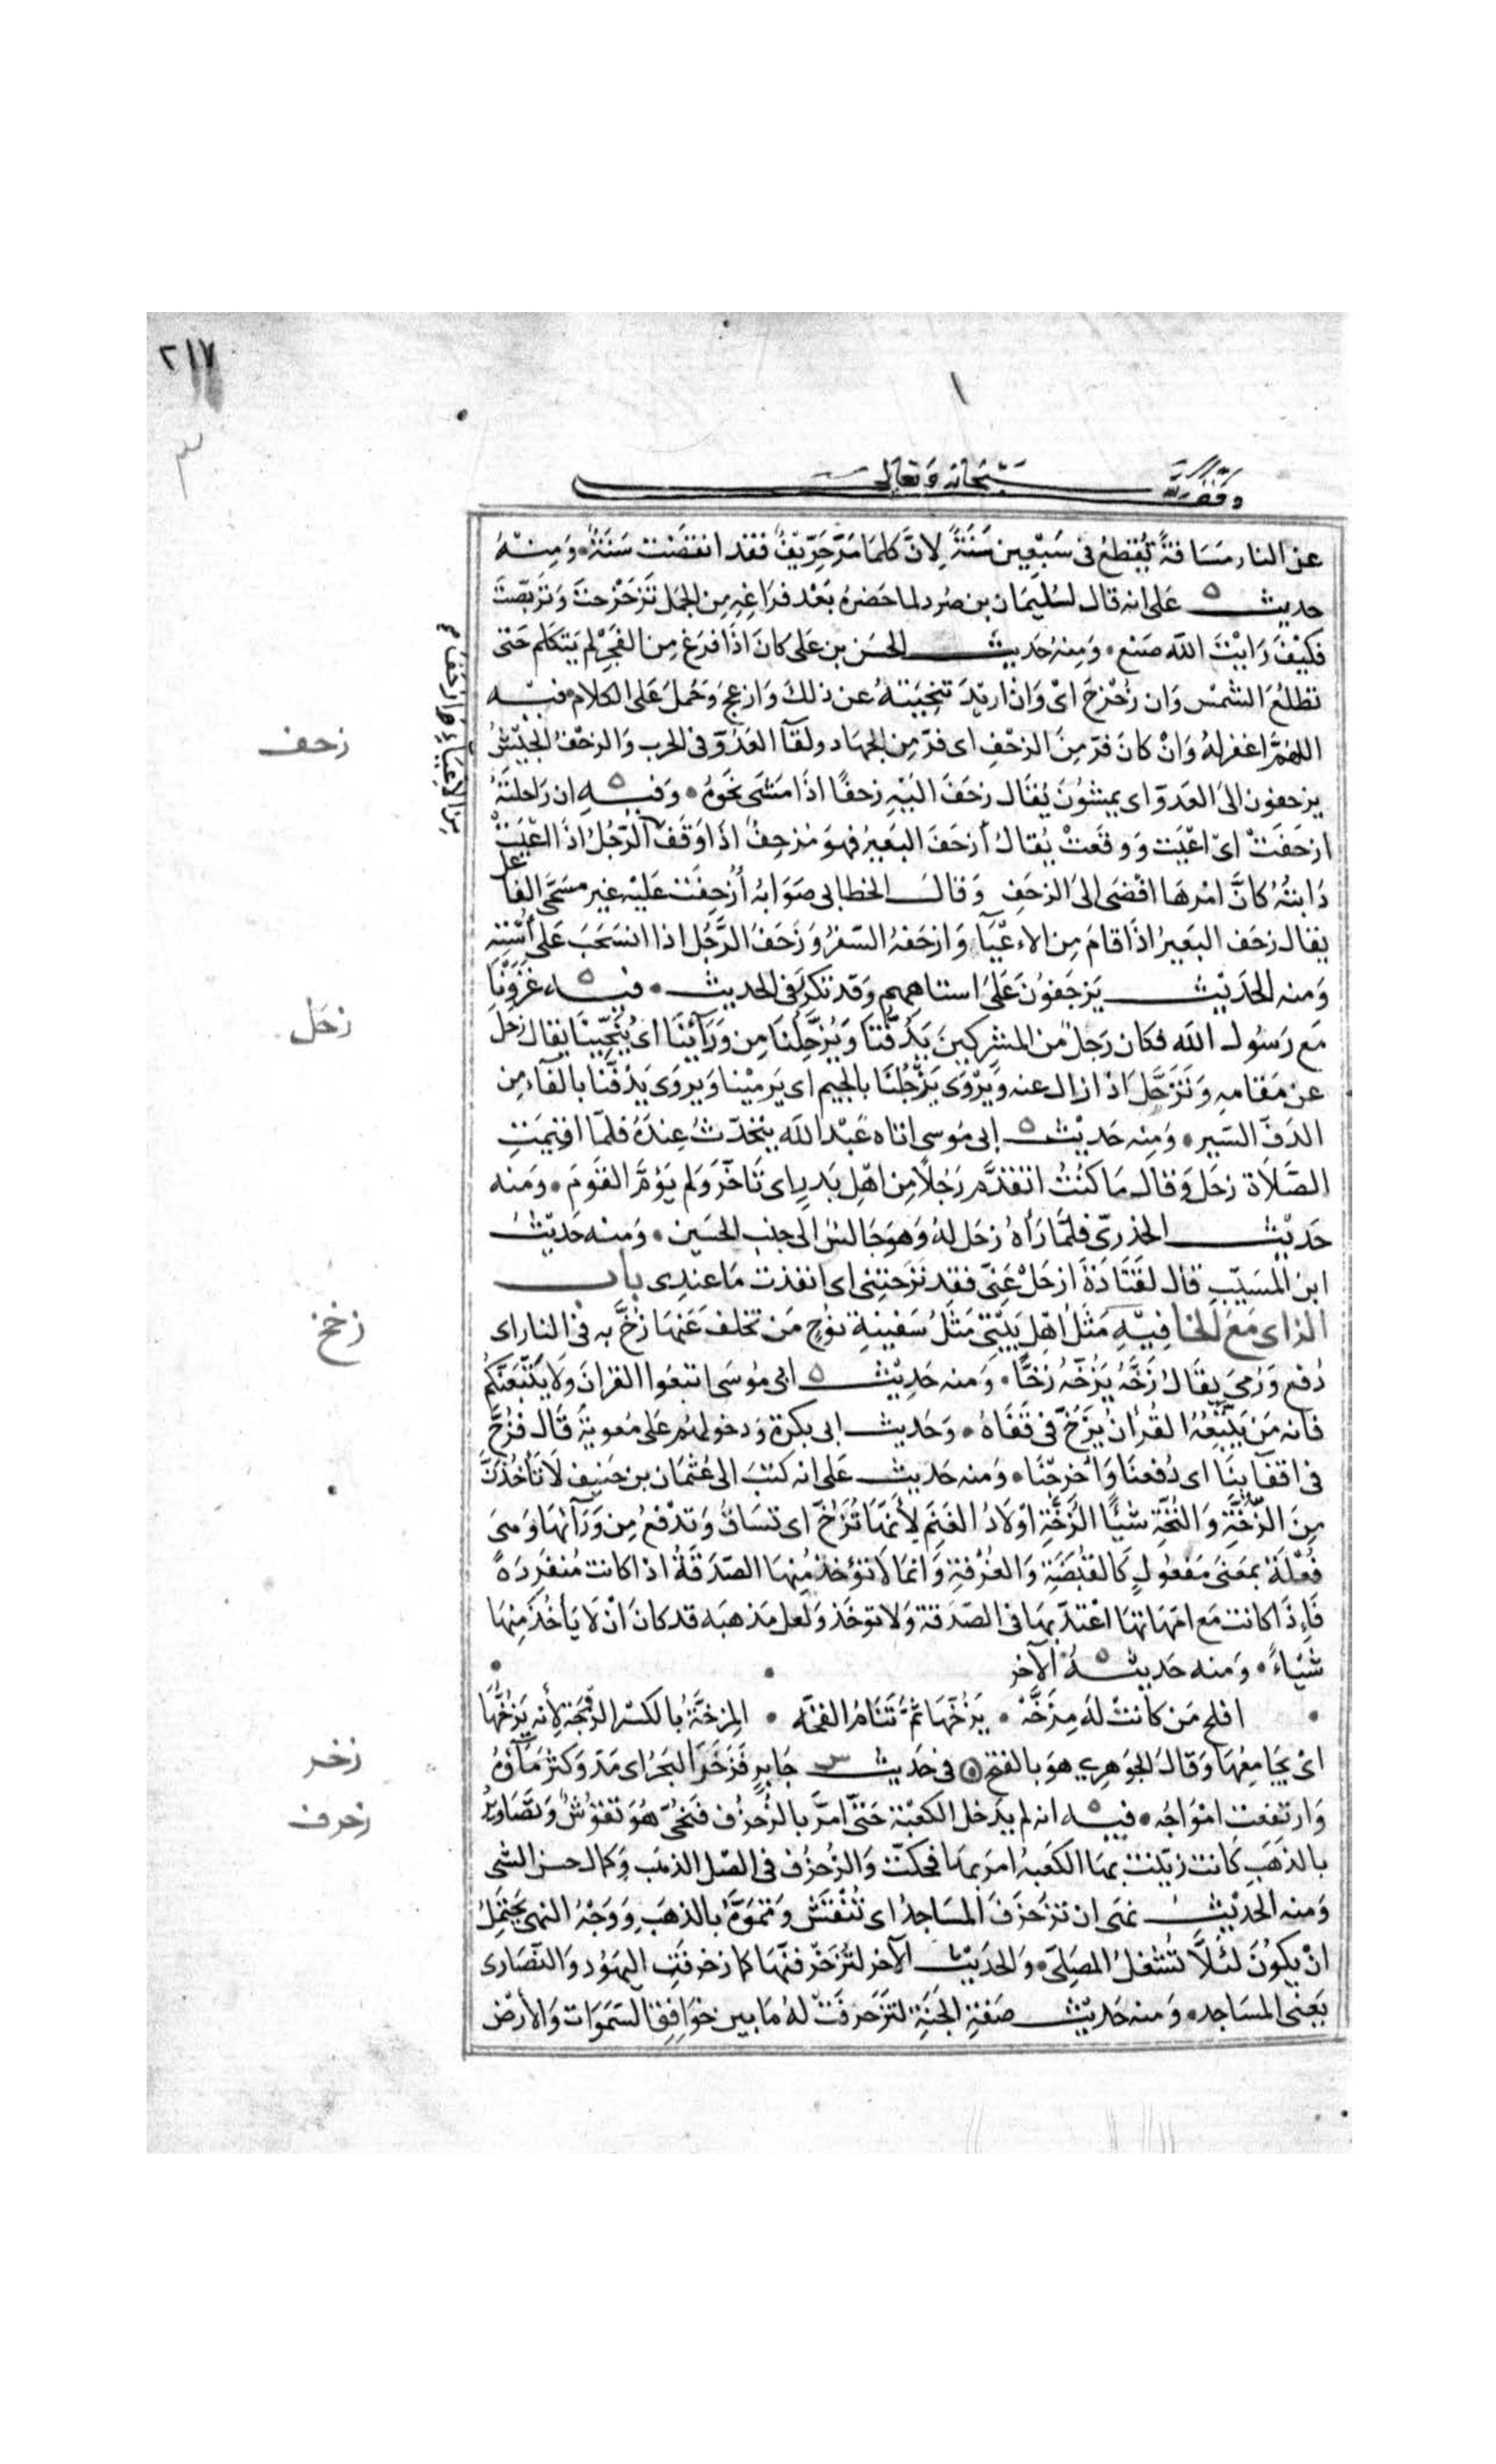 ٢١٧
١
وقف لله سبحانه وتعالى
عن النار مسافةً تُقطعُ فى سَبْعِين سَنَةً لِانَّ كلما مَرَّ خَرِيفٌ فقد انقضت سَنَةٌ ٥ وَمِنْهُ
حديث على انه قال لسُليمَان بن صُرد لما حَضرهُ بَعْد فراغِهِ مِن الجمَل تَزَحْزَحتَ وَتَرَبّصتَ
فكيْفَ رَايْتَ اللّٰه صَنع ٥ وَمِنهُ حَديث الحسَن بن عَلى كانَ اذَا فرَغ مِن الفَجْر لم يَتكلم حَتى
تطلُعَ الشمس وَان زُحْزِحَ اىْ وَانْ اريْدَ تنحِيَتهُ عن ذلكَ وَازعجَ وَحُملَ عَلى الكلام ٥ فيْه
اللهُمَّ اغفر لهُ وَانْ كانَ فرّ مِنَ الزحْفِ اى فرّ مِن الجهَاد ولقآ العَدُوّ فى الحرب وَالزحْفُ الجَيْشُ
يزحفون الىَ العَدوّ اى يمشُونَ يُقَال زحَفَ اليْهِ زحفًا اذَا مَشَى نحَوهُ ٥ وَفيْهِ ان رَاحلتَهُ
ازحَفَتْ اىْ اعْيَت وَوقَعَتْ يُقالُ أزحَفَ البَعيرُ فهوَ مُزحِفٌ اذَا وَقَفَ الرّجُلُ اذَا اعْيَتْ
دَابتُهُ كانَّ امْرهَا افْضَى الىَ الزحَفِ وَقالَ الخطابى صَوَابهُ أُزحِفَت عَليْه غير مسَمَّى الفاعل
يقال زحَف البَعيرُ اذَا قامَ مِن الاعْيَآ وَازحَفهُ السّفرُ وَزحَفَ الرَّجُل اذا انسَحَبَ عَلى أستِهِ
وَمنه الحَديْث يَزحَفوُنَ عَلىَ استاههم وَقد تكرَّر فى الحديث ٥ فيه غزَوْنَا
مَع رَسُول اللّٰه فكان رَجلٌ من المشركينَ يَدُفّنَا وَيُزَحِّلُنَا مِن وَرَآئِنَا اى يُنَحِّينَا يقال زحَلَ
عن مَقامهِ وَتَزَحَّلَ اذَا زال عنه وَيُرْوَى يَزْجُلُنَا بالجيم اى يَرميْنا وَيروَى يَدُفّنا بالفآء مِن
الدَفّ السَير ٥ وَمِنه حَديْث ابى مُوسى اتاه عَبْد اللّٰه يتَحَدّثُ عِندَهُ فلمّا اقيمَتِ
الصّلاَة زحَلَ وَقال مَا كنتُ اتقدَّم رَجُلاً مِن اهْل بَدرٍ اى تَاخّرَ وَلم يَؤمّ القَومَ ٥ وَمنه
حَديْث الخدرىّ فلمَّا رَاهُ زحَل لهُ وَهوَ جَالسٌ الى جنب الحُسَين ٥ وَمِنه حَديْث
ابن المسَيّب قال لقَتَادَة ازحَلْ عَنّى فقد نزحَتنى اى انفذت مَا عندِى بابُ
الزاى مَعَ الخا فيْهِ مَثَل اهْل بَيْتى مَثَلُ سَفينةِ نوُحٍ مَن تخلفَ عَنهَا زُخَّ به فى النار اى
دُفعَ وَرُمىَ يقالُ زَخّهُ يَزُخّهُ زخًّا ٥ وَمنه حَديْث ابى مُوسَى اتبعُوا القرانَ وَلا يَتّبعَنّكمُ
فانه مَن يَتّبِعُهُ القُرانُ يَزُخّ فى قَفاهُ ٥ وَحَديث ابى بكرَة وَدخولهم عَلى مُعويةَ قَال فزُخَّ
فى اقفائِنا اى دُفِعنَا وَاُخرجْنَا ٥ وَمنه حَديث عَلى انه كتبَ الى عُثمَان بن حنيف لاَ تأخُذَنَّ
مِنَ الزُّخَّةِ وَالنُّخّةِ شيْئًا الزُّخّةِ اوْلادُ الغَنَم لأنهَا تُزَخّ اى تسَاقُ وَتدْفعُ مِن وَرَآئهَا وَهىَ
فُعْلَة بمَعنى مَفعُولٍ كَالقبْضَةِ وَالغُرْفةِ وَانمَا لاَ تؤخذ مِنهَا الصّدَقةُ اذا كانت مُنفَرِدَةً
فَاِذَا كانت مَع امّهَاتهَا اعْتدّ بهَا فى الصّدَقة وَلا توخَذ وَلعل مَذهبَه قد كانَ انْ لاَ يَأخُذَ مِنهَا
شَيْاءً ٥ وَمنه حَديثهُ الآخر
افلح مَن كانتْ لهُ مِزَخّهْ ٥ يَزُخّهَا ثمَّ تَنَامُ الفخّه ٥ المِزخّةُ بالكسْر الزوْجَة لأنه يَزُخُّهَا
اىْ يُجَامِعُهَا وَقالَ الجوَهرِى هوَ بالفتح ٥ فى حَديث جَابرٍ فَزَخَرَ البَحرُ اى مَدّ وَكثُر مَآؤهُ
وَارتفعت امْوَاجُه ٥ فيه انه لم يدخل الكعْبَة حَتّى امَرَّ بالزُخرُف فنُحِّىَ هُوَ نقوُشٌ وَتصَاويرُ
بالذهَب كانت زيّنت بهَا الكعَبهُ امر بهَا فحكّت وَالزُخرُف فى الاصْل الذهَب وَكمال حسن الشى
وَمنه الحَديْث نهَى ان تزَخرَفَ المسَاجدُ اى تُنْقَش وَتموّهُ بالذهَب وَوَجْهُ النهى يَحتمل
انْ يكوُنَ لئلاَّ تُشغلُ المصَلى ٥ وَالحَديْث الآخر لتُزَخرفنّهَا كما زخرفَتِ اليَهُود وَالنّصَارى
يَعنى المسَاجد ٥ وَمنه حَديْث صفَةِ الجَنةِ لتزَخرفَتْ لهُ مَا بين خوَافِقِ السّمَوَات وَالأرْض
زحف
زحَل
زخخ
زخر
زخرف